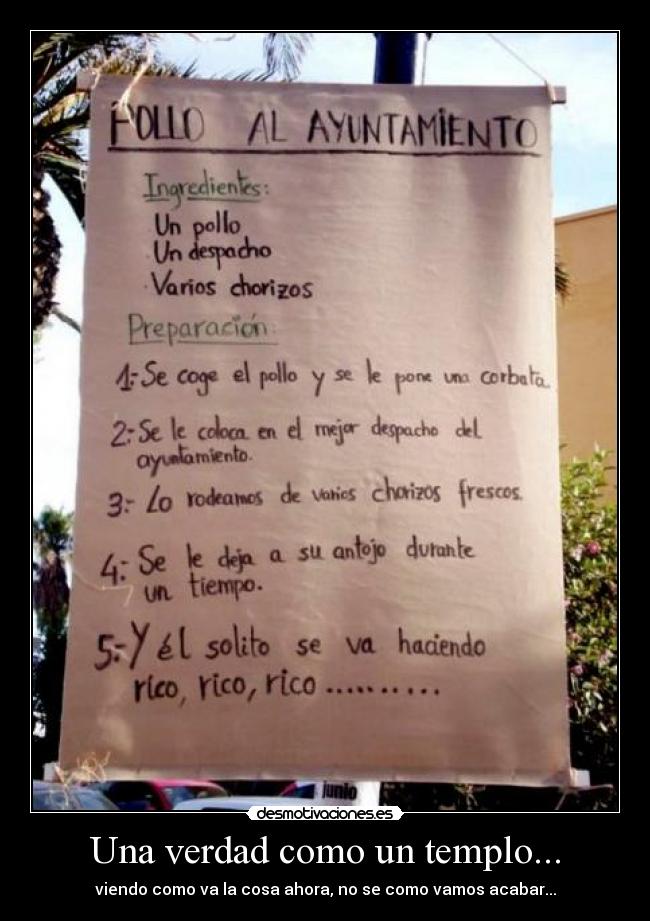 POLLO AL AYUNTAMIENTO
Ingredientes:
Un pollo
Un despacho
Varios chorizos
Preparación:
1:- Se coge el pollo y se le pone una corbata.
2:- Se le coloca en el mejor despacho del
ayuntamiento.
3:- Lo rodeamos de varios chorizos frescos.
4:- Se le deja a su antojo durante
un tiempo.
5:- Y él solito se va haciendo
rico, rico, rico ..........
junio
desmotivaciones.es
Una verdad como un templo...
viendo como va la cosa ahora, no se como vamos acabar...